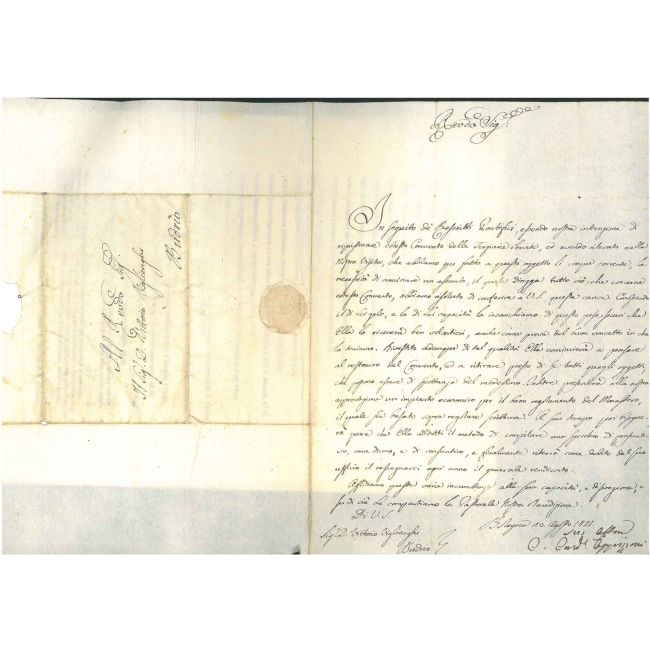 Al Revdo Sig.
Il Sig. D. Vittorio
Budrio
Revdo Sig.
In seguito de' Rescritti Pontificj, essendo nostra intenzione di
ripristinare codesto Convento delle Terziarie Servite, ed avendo rilevato nella
Nostra Visita, che abbiamo qui fatto a questo oggetto li scopo corrente, la
necessità di nominare un assunto, il quale diriga tutto ciò, che concerne
codesto Convento, abbiamo risoluto di conferire a V.S. questa carica.
di Lei zelo, e la di Lei capacità lo incarichiamo di questo peso sicuri che
Ella lo riceverà ben volontieri, anche come prova del buon concetto in che
la teniamo. Rivestita adunque di tal qualità Ella comincierà a pensare
al restauro del Convento, ed a ritirare presso di se tutti quegli oggetti,
che sapono essere di spettanza del medesimo. Inoltre presenterà alla nostra
approvazione un impianto economico per il buon regolamento del Monastero,
il quale sia basato sopra regolare scrittura. A suo tempo poi bisogne-
rà pure che Ella adotti il metodo di compilare uno specchio di preventi-
vo, uno di consuntivo, e finalmente riterrà come debito del suo
uffizio il rassegnarci ogni anno il generale rendiconto.
Affidiamo queste varie incumbenze alla sua capacità, e discrezione, e
di ciò Le compartiamo la Pastorale Nostra Benedizione.
Di V.S.
Bologna 10. Agosto 1821.
Sig. D. Vittorio
Budrio
C. Card. Oppizzoni